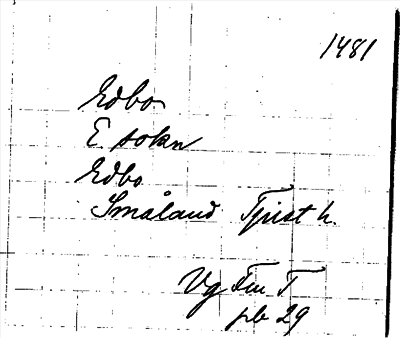 1481
Edbo
E sokn
Edbo
Småland Tjust h.
Vg Fm T
pb 29